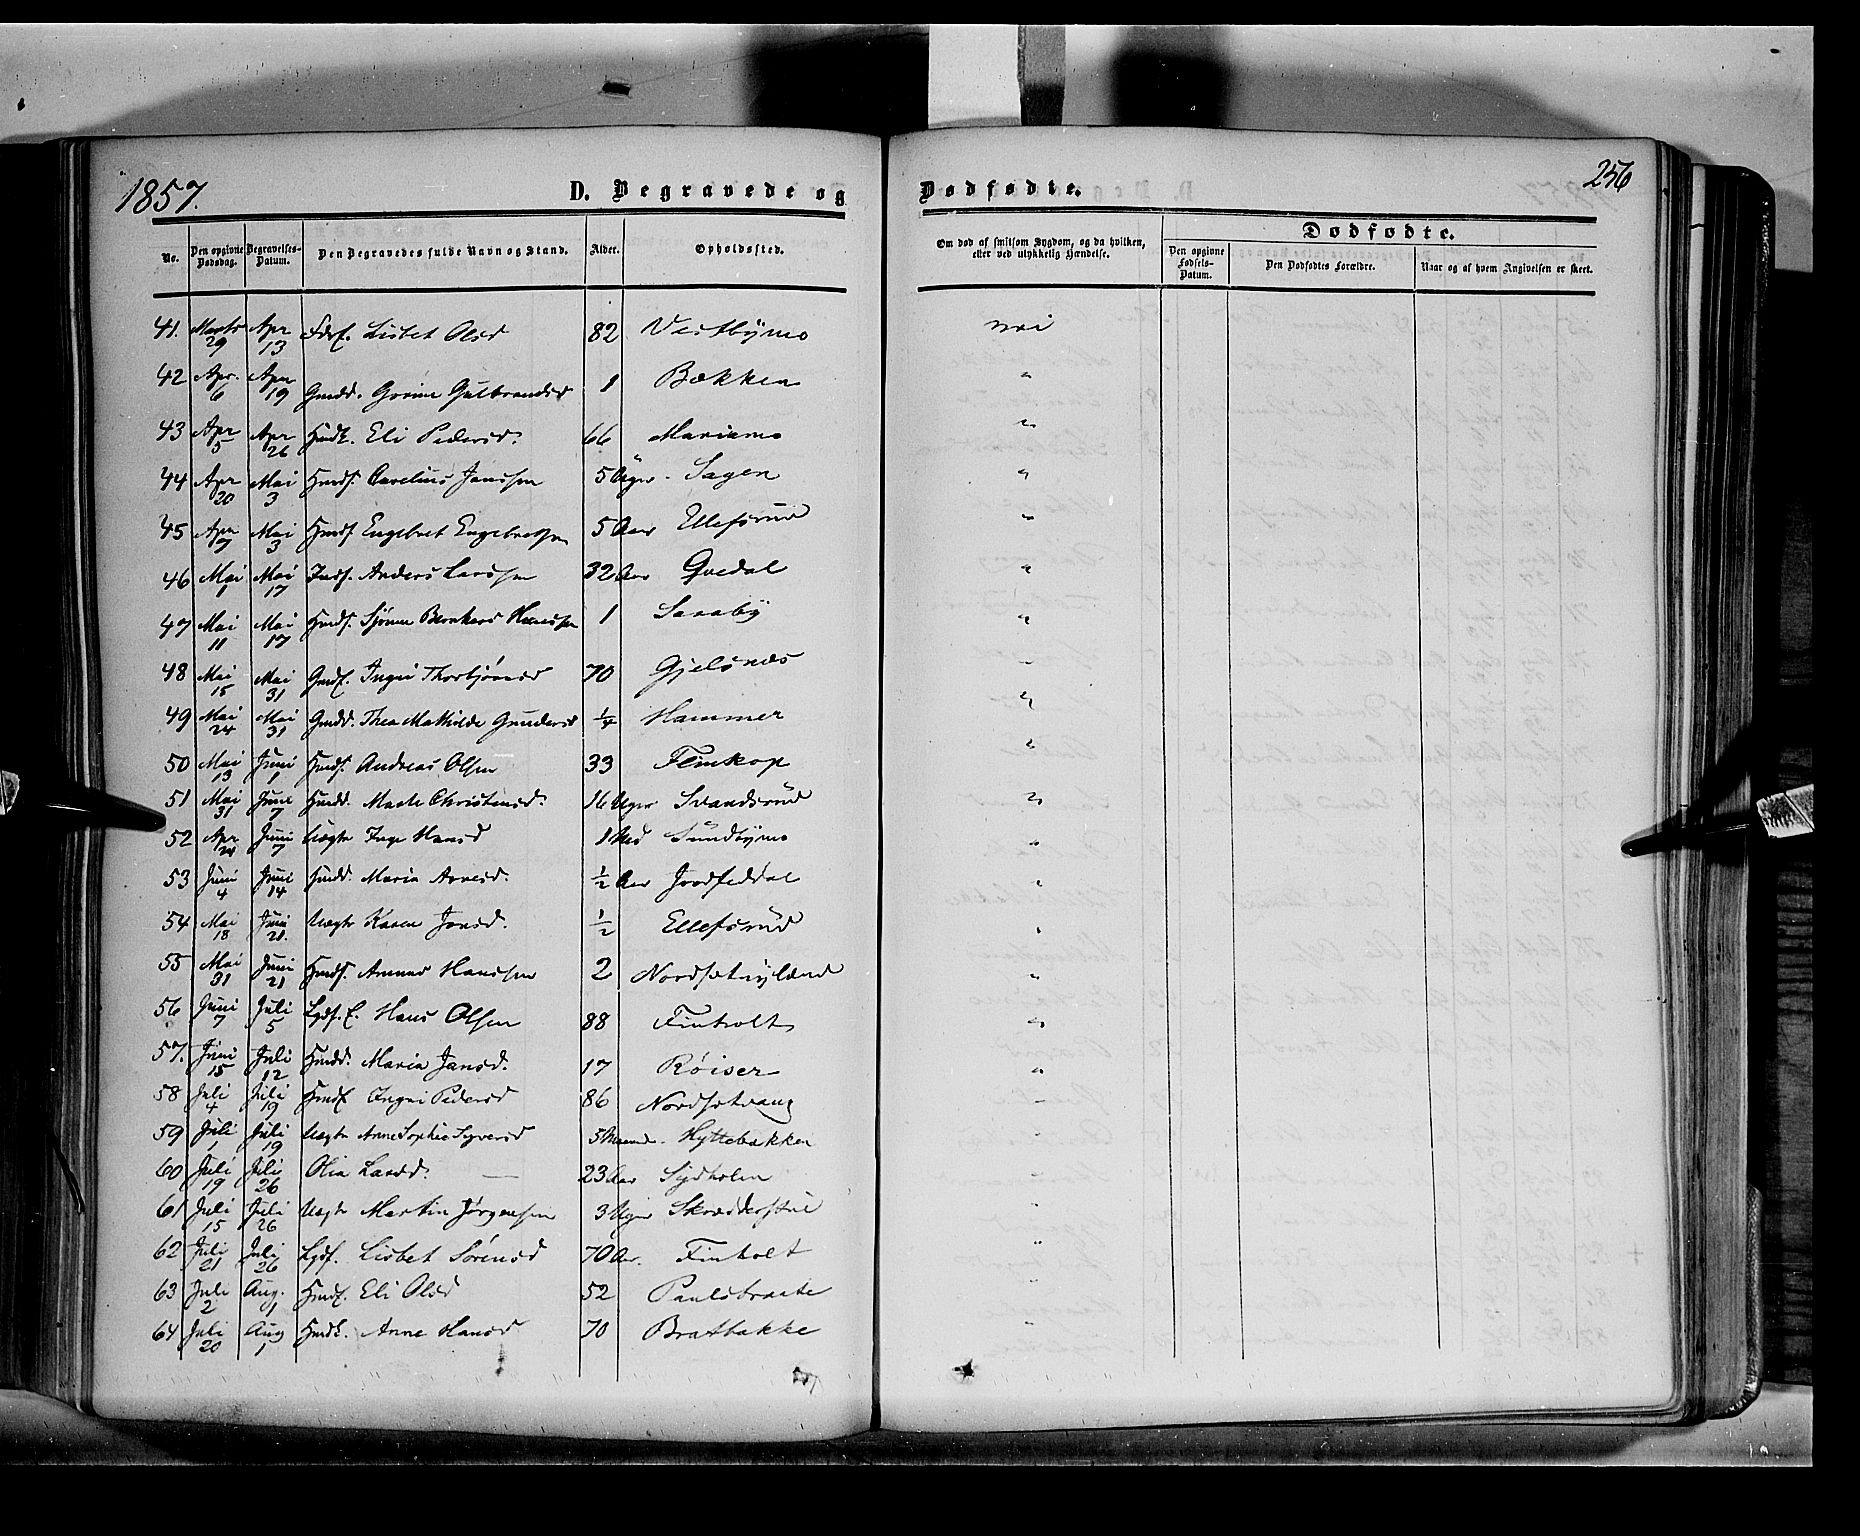 1857.
D. Begravede og
Dødfødte.
256
No.
Den opgivne Dødsdag.
Begravelses-Datum.
Den Begravedes fulde Navn og Stand.
Alder.
Opholdssted.
Om død af smitsom Sygdom, og da hvilken, eller ved ulykkelig Hændelse.
Dødfødte.
Den opgivne Fødsels-Datum.
Den Dødfødtes Forældre.
Naar og af hvem Angivelsen er skeet.
41. Marts 29 Apr 13 Lisbet Olsd 82 Vestbymo nei
42 Apr. 6 Apr 19 Gmdd. Gulbrandsd 1 Bækken "
43 Apr 5 Apr 26 Hmdk. Eli Pedersd. 66 Mariamo "
44 Apr 20 Mai 3 Hmds. Carelius Janssen 5 Uger Sagen "
45 Apr 7 Mai 3 Hmds Engebret Engebretsen 5 Aar Ellefsrud "
46 Mai 1 Mai 17 Inds. Anders Larssen 32 Aar Qvedal "
47 Mai 11 Mai 17 Hmds. Hanssen 1 Saxeby "
48 Mai 15 Mai 31 Gmdk. Ingri Thorbjørnsd 70 Gjelsnæs "
49 Mai 24 Mai 31 Gmdd. Thea Mathilde Gundersd 1/4 Hammer "
50 Mai 13 Juni 1 Hmds. Andreas Olsen 33 Flinkop "
51 Mai 31 Juni 7 Hmdd. Marte Christensd. 16 Uger Svandsrud "
52 Apr 24 Juni 7 Uægte Inge Hansd 1 Sundbymo "
53 Juni 4 Juni 14 Hmdd. Maria Arnesd. 1/2 Aar "
54 Mai 18 Juni 21. Uægte Karen Jonsd. 1/2 Ellefsrud "
55 Mai 31 Juni 21 Hmds. Hanssen 2 "
56 Juni 7 Juli 5 Hans Olsen 88 Finholt "
57. Juni 15 Juli 12 Hmdd. Maria Jansd. 17 Røiser "
58 Juli 4 Juli 19 Hmdk Ingri Pedersd 86 "
59 Juli 1 Juli 19 Uægte Anne Sophie Syversd 5 Maand. Hyttebakken "
60 Juli 19 Juli 26 Olia Larsd. — 23 Aar Sydholen "
61 Juli 15 Juli 26 Uægte Martin Jørgensen 3 Uger Skrædderstue "
62 Juli 21 Juli 26 Lisbet Sørensd 70 Aar. Finholt "
63 Juli 2 Aug. 1 Hmdk. Eli Olsd 52 Paulsbraate "
64 Juli 20 Aug 1 Hmdk. Anne Hansd 70 Bratbakke "